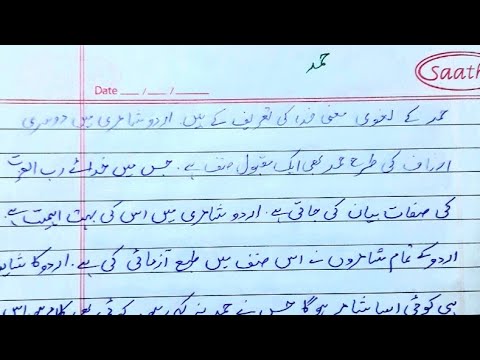 حمد
Saath
Date ___/___/___
حمد کے لغوی معنی خدا کی تعریف کے ہیں. اردو شاعری میں دوسری
اصناف کی طرح حمد بھی ایک مقبول صنف ہے. جس میں خدائے رب العزت
کی صفات بیان کی جاتی ہے. اردو شاعری میں اس کی بہت اہمیت ہے.
اردو کے تمام شاعروں نے اس صنف میں طبع آزمائی کی ہے. اردو کا شاید
ہی کوئی ایسا شاعر ہوگا جس نے حمد نہ کہی ہو. کوئی بھی